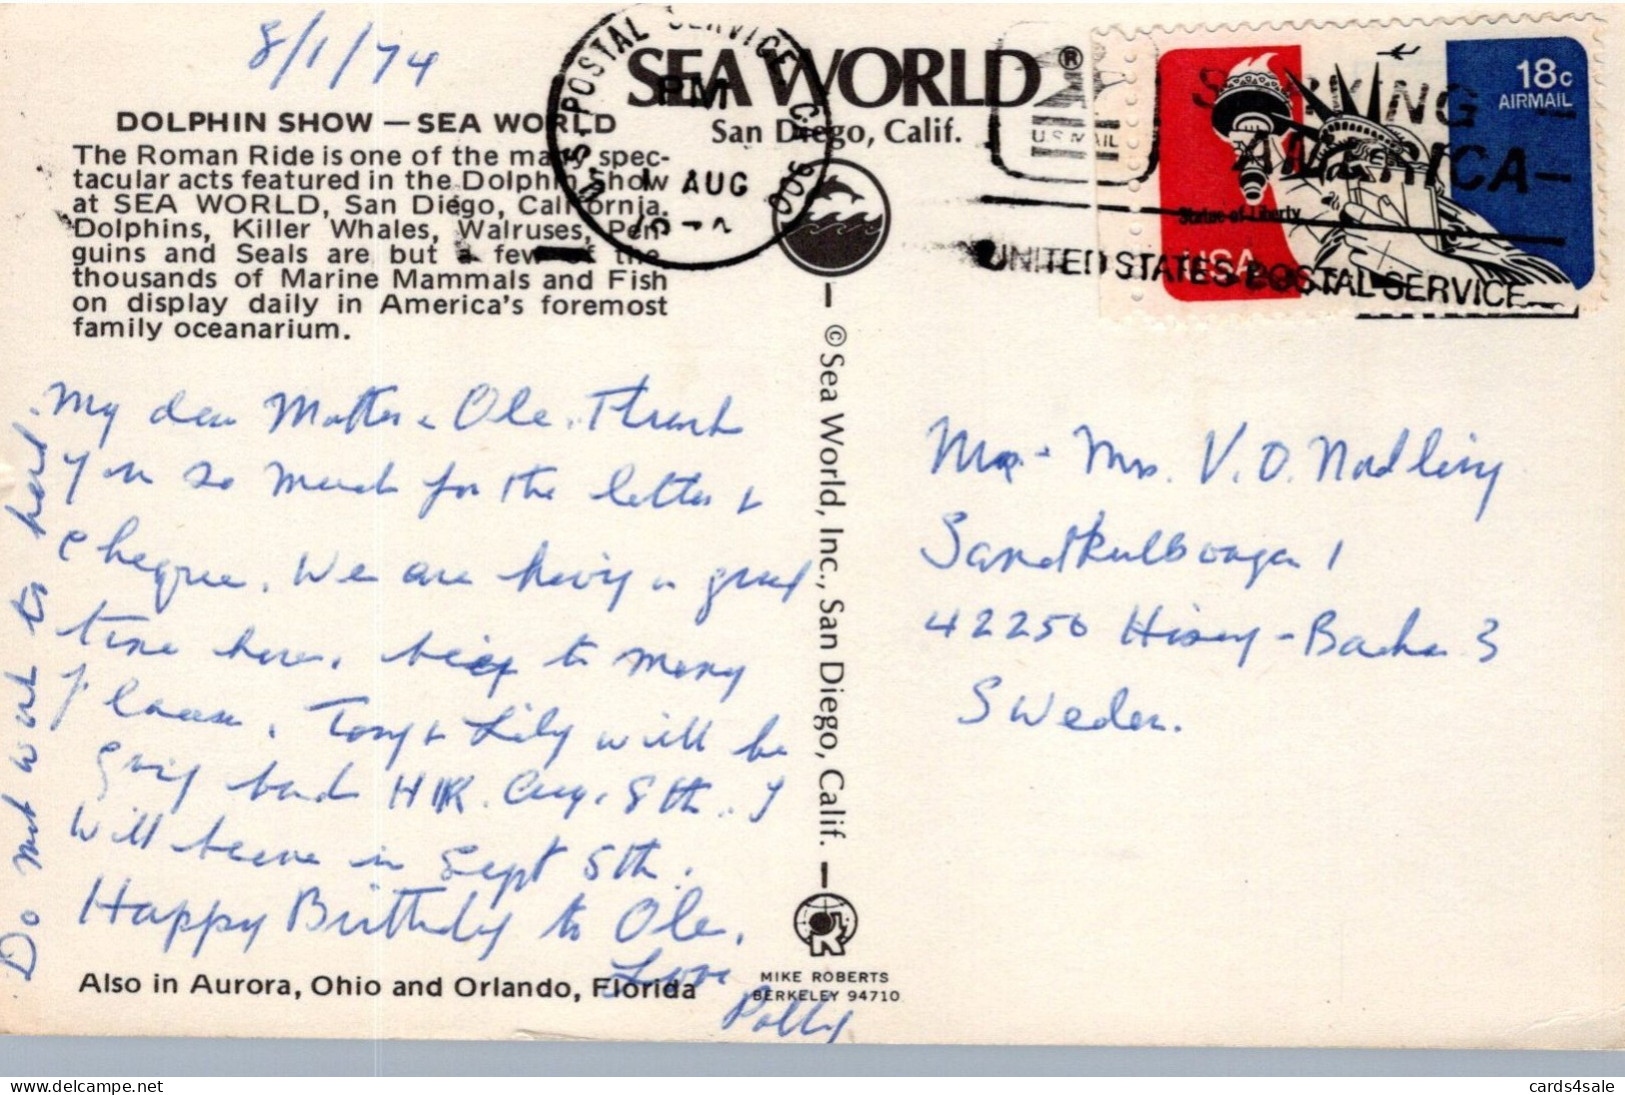 8/1/74
SEA WORLD®
San Diego, Calif.
DOLPHIN SHOW — SEA WORLD
The Roman Ride is one of the many spec-
tacular acts featured in the Dolphin Show
at SEA WORLD, San Diego, California.
Dolphins, Killer Whales, Walruses, Pen-
guins and Seals are but a few of the
thousands of Marine Mammals and Fish
on display daily in America's foremost
family oceanarium.
U.S. POSTAL SERVICE CA
PM
1 AUG
900
U.S. MAIL
AMERICA
UNITED STATES POSTAL SERVICE
18c
AIRMAIL
Statue of Liberty
USA
My dear Mother & Ole. Thank
you so much for the letter &
cheque. We are having a great
time here. to many
places. Tony & Lily will be
going back HK. Aug. 8th. I
will leave in Sept 5th.
Happy Birthday to Ole.
Love
Polly
Do not work to hard.
Mr. & Mrs. V. O. Nordling
1
42250 Hisings-Backa 3
Sweden.
© Sea World, Inc., San Diego, Calif.
Also in Aurora, Ohio and Orlando, Florida
MIKE ROBERTS
BERKELEY 94710
delcampe.net
cards4sale